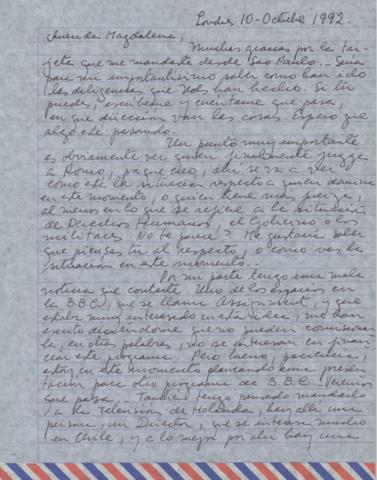 Londres 10-Octubre 1992.
Querida Magdalena,
Muchas gracias por la tar-
jeta que me mandaste desde Sao Paulo. - Sería
para mi importantísimo saber como han ido
las diligencias que Uds han hecho. Si tu
puedes, escríbeme y cuéntame que pasa,
en que dirección van las cosas. Espero que
algo esté pasando.
Un punto muy importante
es obviamente ver quien finalmente juzga
a Romo, ya que creo, ahí se va a ver
como está la situación respecto a quien domina
en este momento, o quien tiene más fuerza,
al menos en lo que se refiere a la situación
de Derechos Humanos, el Gobierno o los
militares. No te parece? Me gustaría saber
que piensas tu al respecto, o como ves la
situación en este momento.
Por mi parte tengo una mala
noticia que contarte. Uno de los espacios en
la B.B.C., que se llama Assignment, y que
estaba muy interesado en esta idea, me han
escrito diciéndome que no pueden comisionar
la, en otras palabras, no se interesan en finan
ciar este programa. Pero bueno, paciencia,
estoy en este momento planeando una presen
tación para otro programa de B.B.C. Veremos
que pasa. - También tengo pensado mandarlo
a la Televisión de Holanda, hay allí una
persona, un Director, que se interesa mucho
en Chile, y a lo mejor por ahí hay una